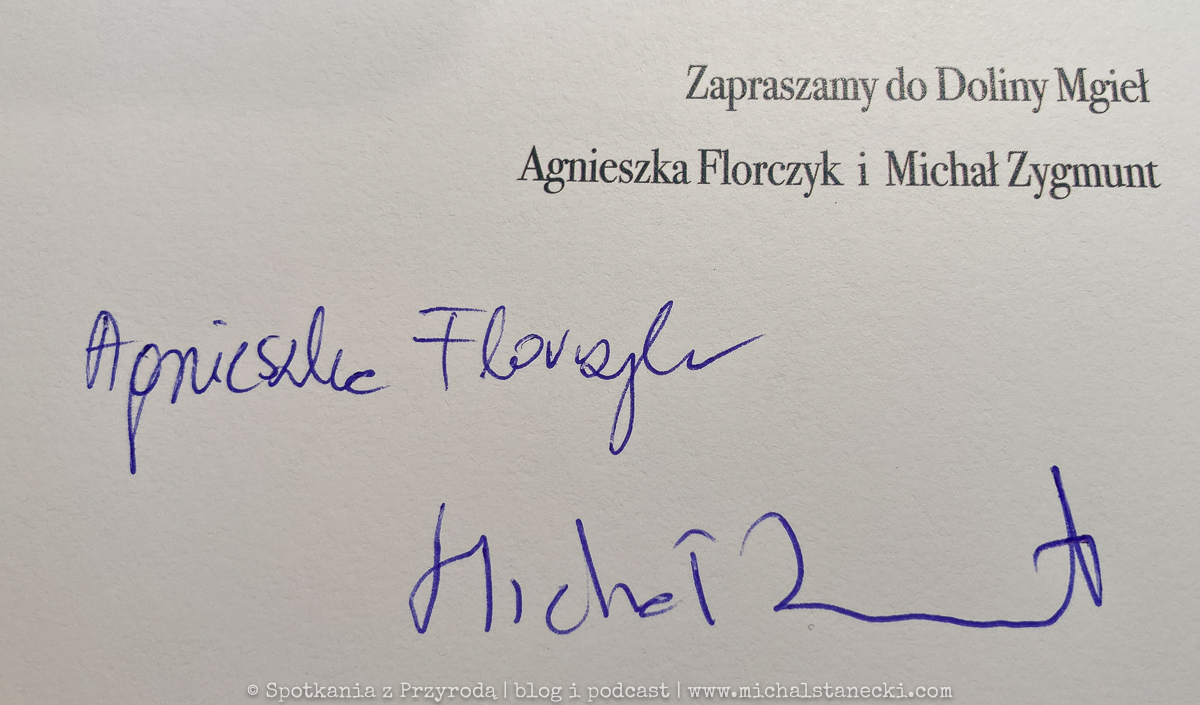 Zapraszamy do Doliny Mgieł
Agnieszka Florczyk i Michał Zygmunt
Agnieszka Florczyk
Michał Z
© Spotkania z Przyrodą | blog i podcast | www.michalstanecki.com